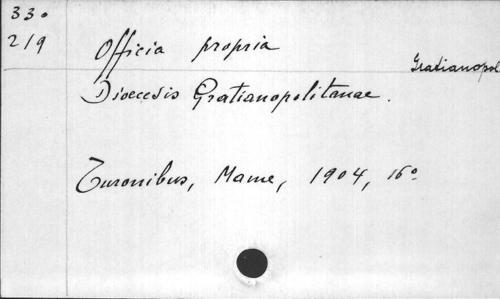 330
219
Officia propria
Gratianopol
Dioecesis Gratianopolitanae.
Turonibus, Mame, 1904, 16º